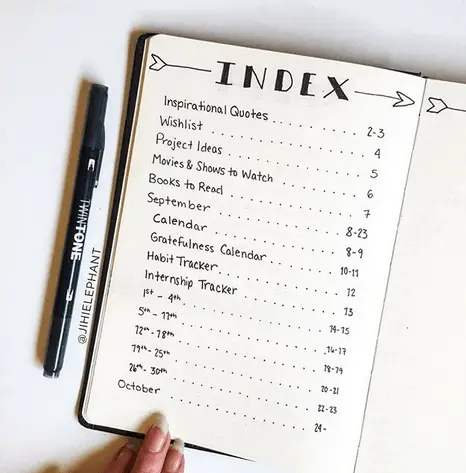 INDEX
Inspirational Quotes . . . . . . . . . . 2-3
Wishlist . . . . . . . . . . . . . . . . 4
Project Ideas . . . . . . . . . . . . . 5
Movies & Shows to Watch . . . . . . . . 6
Books to Read . . . . . . . . . . . . . 7
September . . . . . . . . . . . . . . . 8-23
Calendar . . . . . . . . . . . . . . . 8-9
Gratefulness Calendar . . . . . . . . . 10-11
Habit Tracker . . . . . . . . . . . . . 12
Internship Tracker . . . . . . . . . . . 13
1st - 4th . . . . . . . . . . . . . . . 14-15
5th - 11th . . . . . . . . . . . . . . . 16-17
12th - 18th . . . . . . . . . . . . . . 18-19
19th - 25th . . . . . . . . . . . . . . 20-21
26th - 30th . . . . . . . . . . . . . . 22-23
October . . . . . . . . . . . . . . . . 24-
TWINTONE
@JIHIELEPHANT